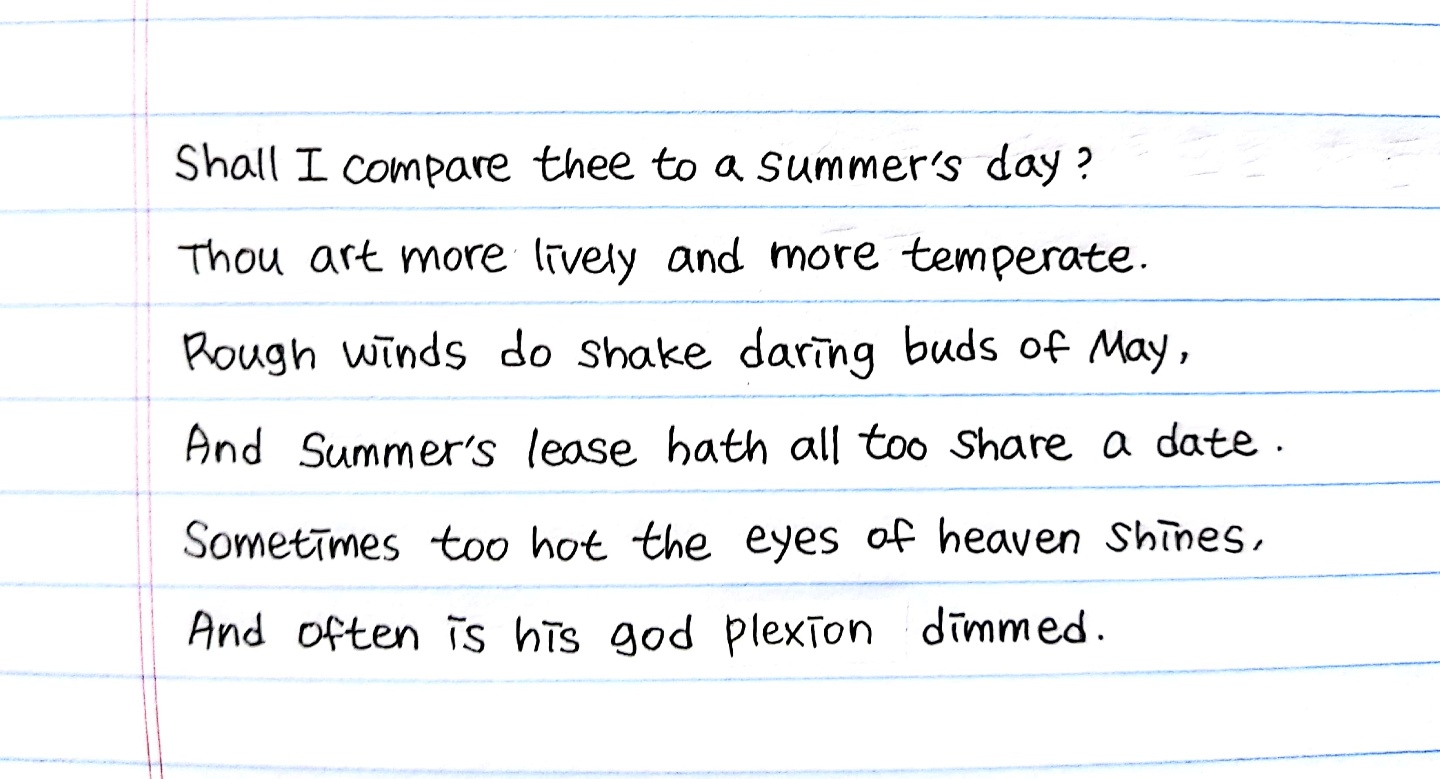 Shall I compare thee to a summer's day?
Thou art more lively and more temperate.
Rough winds do shake daring buds of May,
And Summer's lease hath all too share a date.
Sometimes too hot the eyes of heaven shines,
And often is his god plexion dimmed.